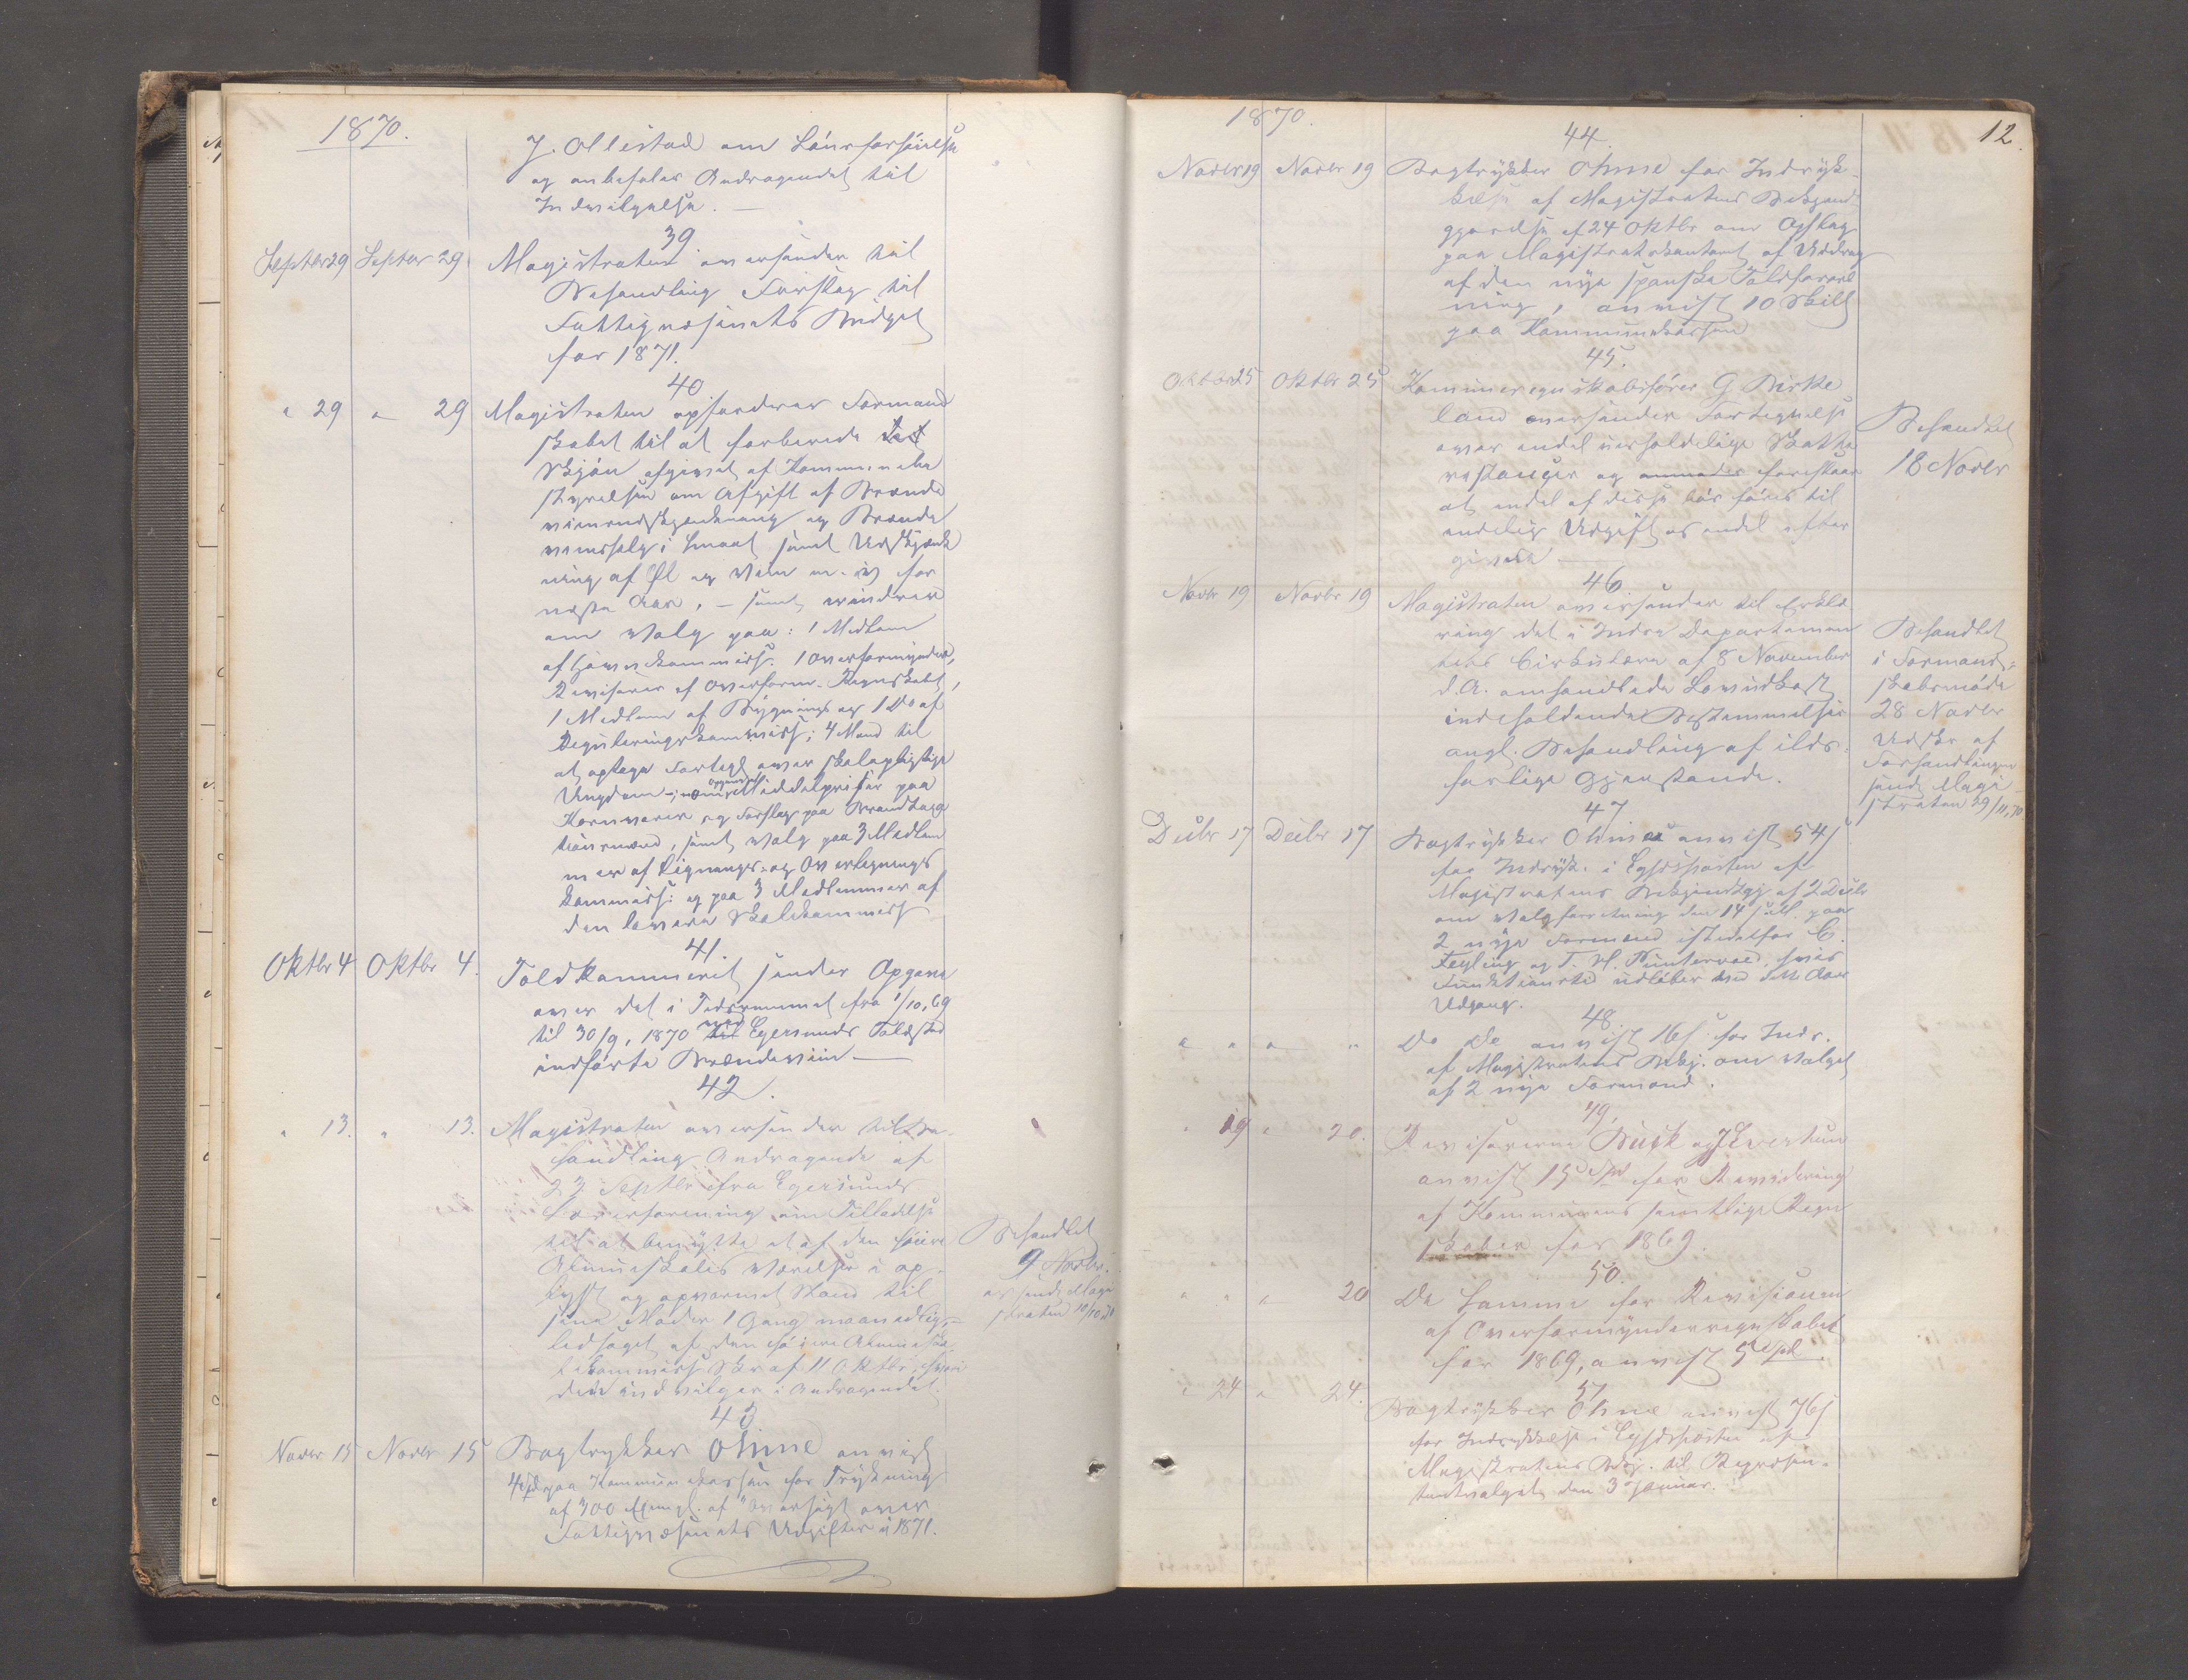 1870.
J. Ollestad om Lönsforhöielse
og anbefales Andragendet til
Indvilgelse. —
39.
Septbr 29 Septbr 29 Magistraten oversender til
Behandling Forslag til
Fattigvæsenets Budget
for 1871.
40
" 29 " 29 Magistraten opfordrer Formand
skabet til at forberede det
Skjön afgivet af Kommunebe
styrelsen om Afgift af Brænde
viinsudskjænkning og Brænde
vinssalg i Smaat samt Udskjænk
ning af Øl og Vin m. v. for
næste Aar, – samt erindrer
om Valg paa: 1 Medlem
af Havnekommiss. 1 Overformynder,
Revisorer af Overform. Regnskabet,
1 Medlem af Bygnings og 1 Do af
Reguleringskommiss; 4 Mand til
at optage Forteg. over skolepligtige
Ungdom –; opgivet Middelpriser paa
Kornvarer og Forslag paa Brandtaxa
tionsmænd, samt Valg paa 3 Medlem
mer af Lignings- og Overlignings
kommiss: og paa 3 Medlemmer af
den lavere Skolekommiss
41.
Oktbr 4 Oktbr 4. Toldkammeret sender Opgave
over det i Tidsrummet fra 1/10, 69
til 30/9, 1870 ved Egersunds Toldsted
indførte Brændeviin —
42.
" 13. " 13. Magistraten oversender til Be-
handling Andragende af
23 Septbr fra Egersunds
Lærerforening om Tilladelse
til at benytte et af den höiere
Almueskoles Værelser i op-
lyst og opvarmet Stand til
sine Møder 1 Gang maanedlig, –
ledsaget af den höiere Almuesko-
lekommiss. Skr af 11 Oktbr, hvori
den indvilger i Andragendet.
Behandlet
9 Novbr.
og sendt Magi
straten 10/10.70
43.
Novbr 15 Novbr 15 Bogtrykker Ohme anvist
4 Spd paa Kommunekassen for Trykning
af 300 Exempl. af "Oversigt over
Fattigvæsenets Udgifter i 1871.
1870.
12.
44.
Novbr 19 Novbr 19 Bogtrykker Ohme for Indryk-
kelse af Magistratens Bekjendt-
gjørelse af 24 Oktbr om Opslag
paa Magistratskontoret af Uddrag
af den nye spanske Toldforord
ning, anvist 10 Skill
paa Kommunekassen
45.
Oktbr 25 Oktbr 25 Kommuneregnskabsfører G Birke
land oversender Fortegnelse
over endel uerholdelige Skatte
restancer og foreslaar
at endel af disse bör föres til
endelig Udgift og endel efter
gives —
Behandlet
18 Novbr
46
Novbr 19 Novbr 19 Magistraten oversender til Erklæ
ring det i Indre Departemen
tets Cirkulære af 8 November
d. A. omhandlede Lovudkast
indeholdende Bestemmelser
angl. Behandling af ilds-
farlige Gjenstande.
Behandlet
i Formand-
skabsmøde
28 Novbr
Udskr. af
Forhandlingen
sendt Magi
straten 29/11.70
47
Decbr 17 Decbr 17 Bogtrykker Ohme anvist 54 s
for Indryk. i Egersposten af
Magistratens Bekjendtgj. af 2 Decbr
om Valgforretning den 14 paa
2 nye Formænd istedetfor C.
Feyling og T. H. Puntervold, hvis
Funktionstid udløber med dette Aars
Udgang.
48
" " " " Do Do anvist 16 s. for Indr.
af Magistratens Bekj. om Valget
af 2 nye Formænd.
49.
" 19 " 20. Revisorerne Buck og J Evertsen
anvist 15 Spd for Revidering
af Kommunens samtlige Regn
skaber for 1869.
50.
" " " 20 De Samme for Revisionen
af Overformynderregnskabet
for 1869, anvist 5 Spd
51
" 24 " 24. Bogtrykker Ohme anvist 76 s
for Indrykkelse i Egersposten af
Magistratens Bekj. til Repræsen-
tantvalget den 3 Januar.